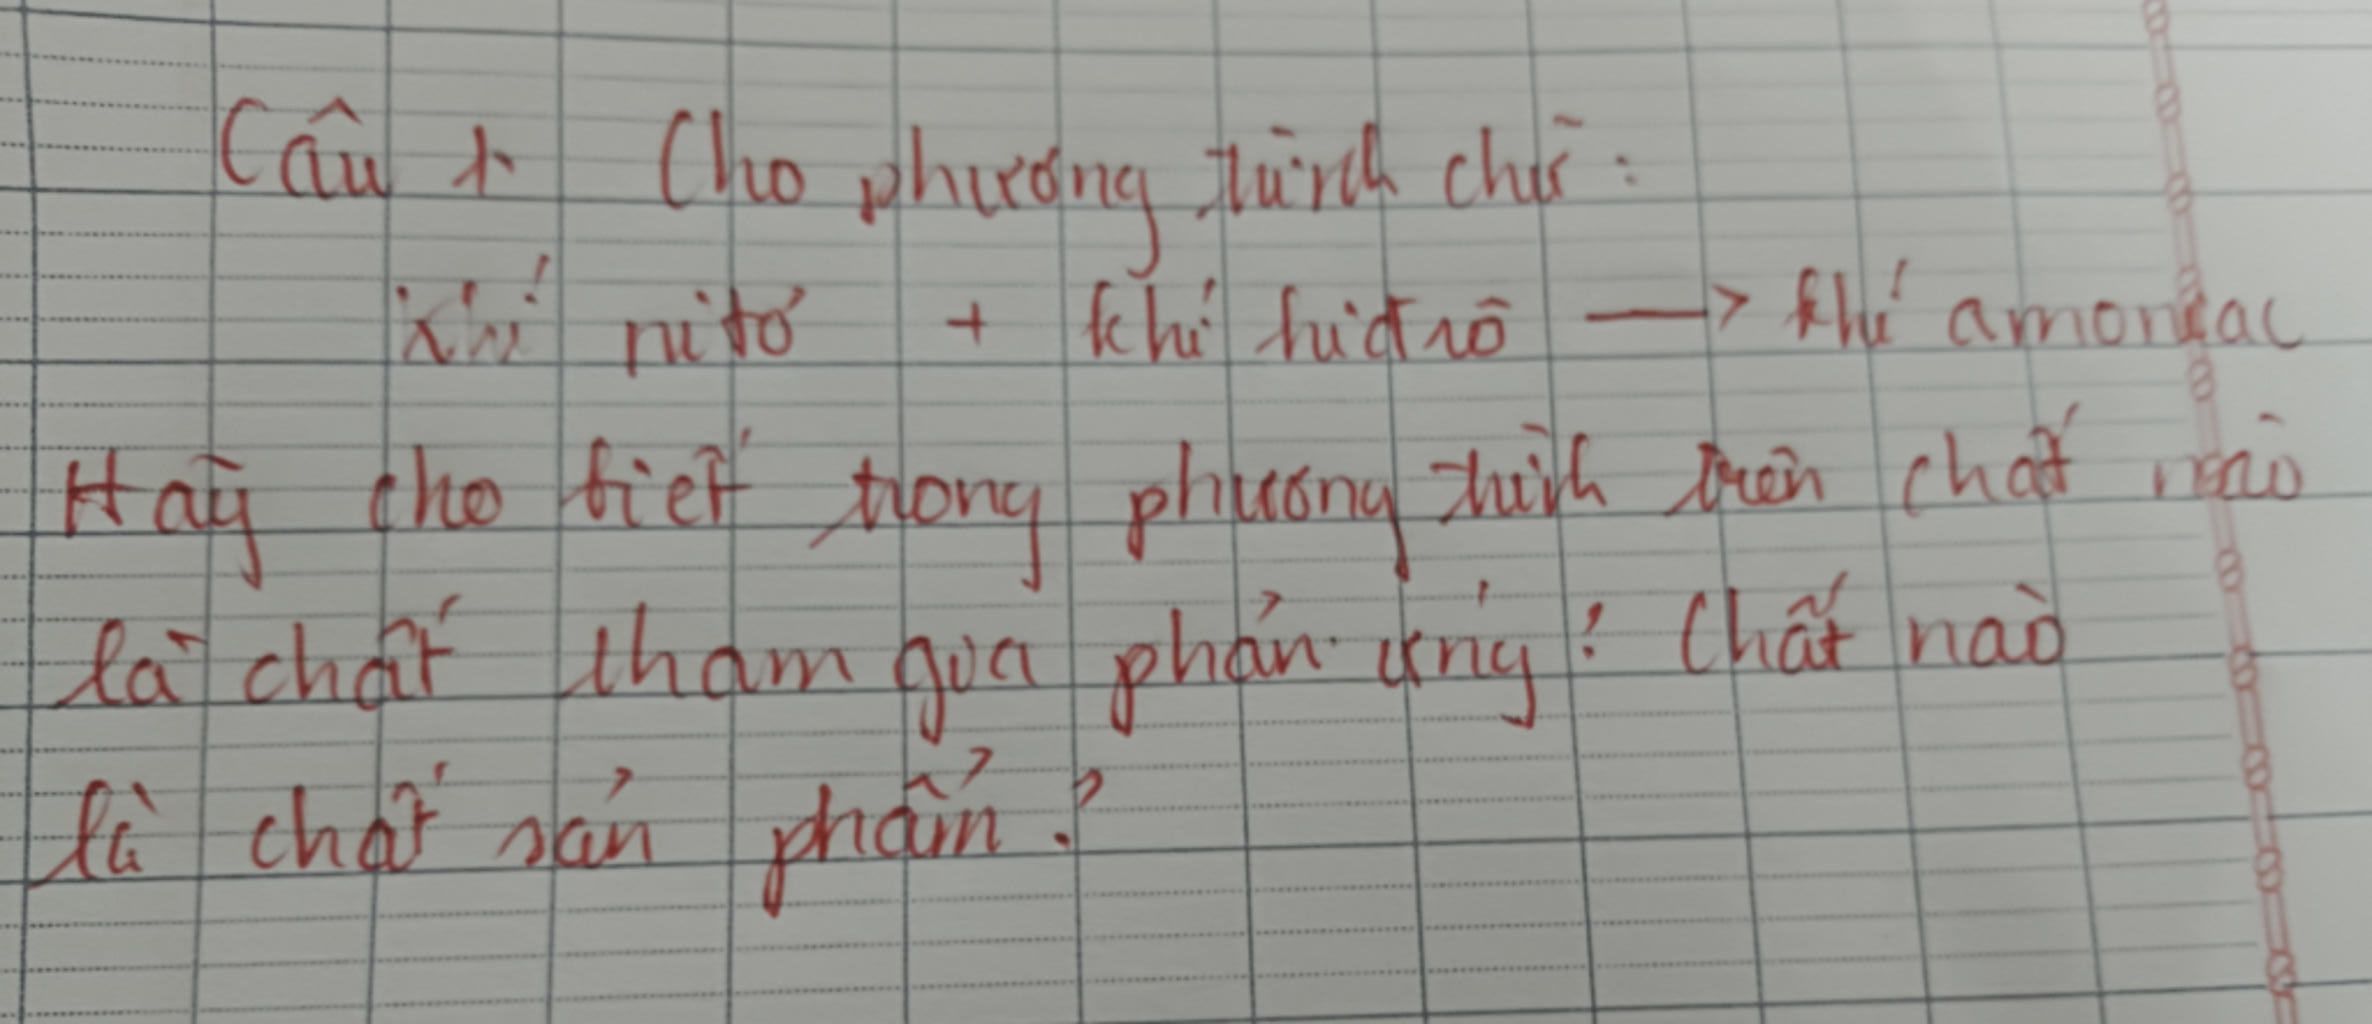 Câu 1. Cho phương trình chữ:
Khí nitơ + khí hiđrô → khí amoniac
Hãy cho biết trong phương trình trên chất nào
là chất tham gia phản ứng? Chất nào
là chất sản phẩm?